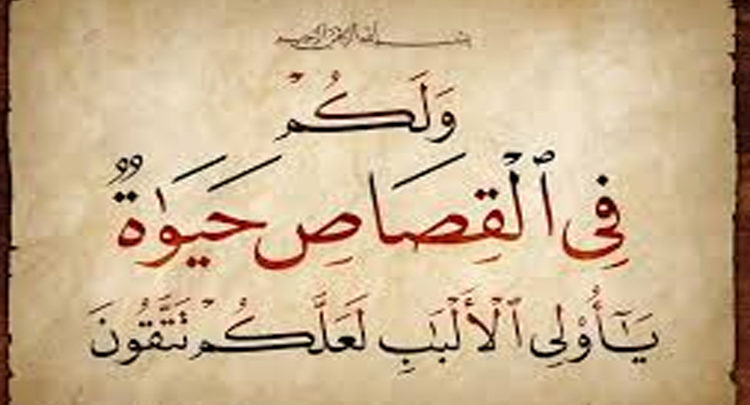 بسم الله الرحمن الرحيم
وَلَكُمْ
فِي ٱلْقِصَاصِ حَيَوٰةٌ
يَـٰٓأُوْلِي ٱلْأَلْبَـٰبِ لَعَلَّكُمْ تَتَّقُونَ